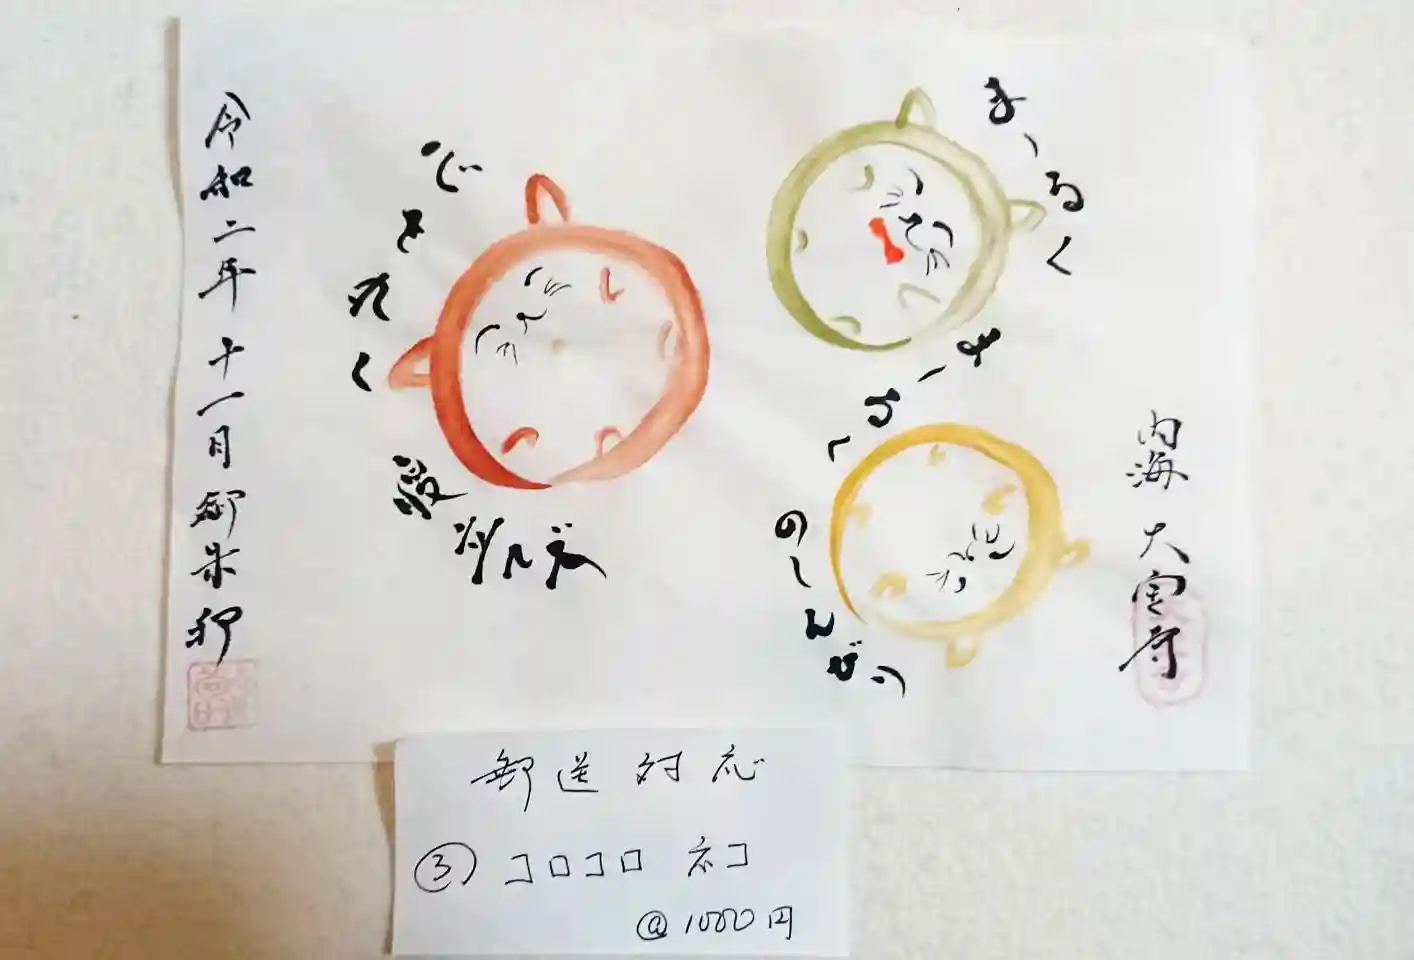 内海 大宝寺
まーるく
ゆーるく
のーんびり
心をたく
令和二年十一月御朱印
郵送対応
③ コロコロ ネコ
@1000円